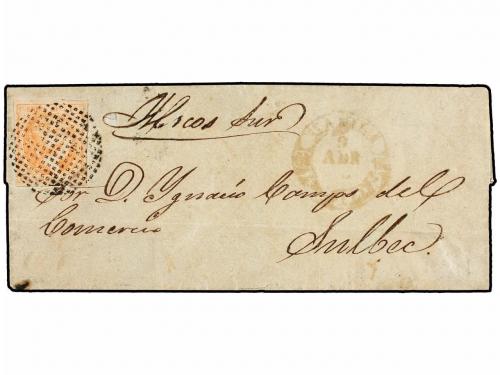 Ylocos Sur
MANILA
9
ABR
Sor D. Ygnacio Camps del
Comercio
Sulbec.